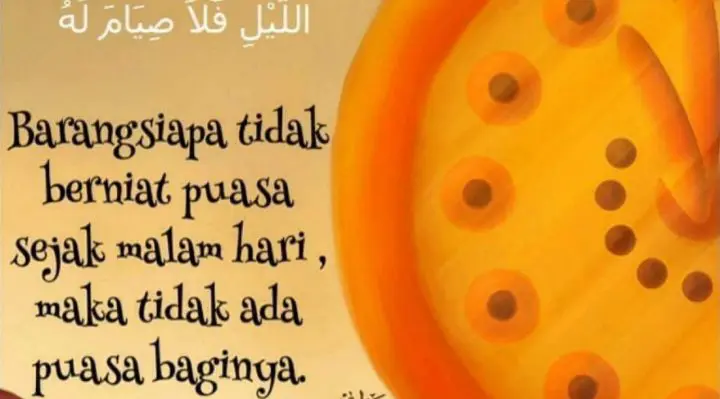 اللَّيْلِ فَلَا صِيَامَ لَهُ
Barangsiapa tidak
berniat puasa
sejak malam hari ,
maka tidak ada
puasa baginya.